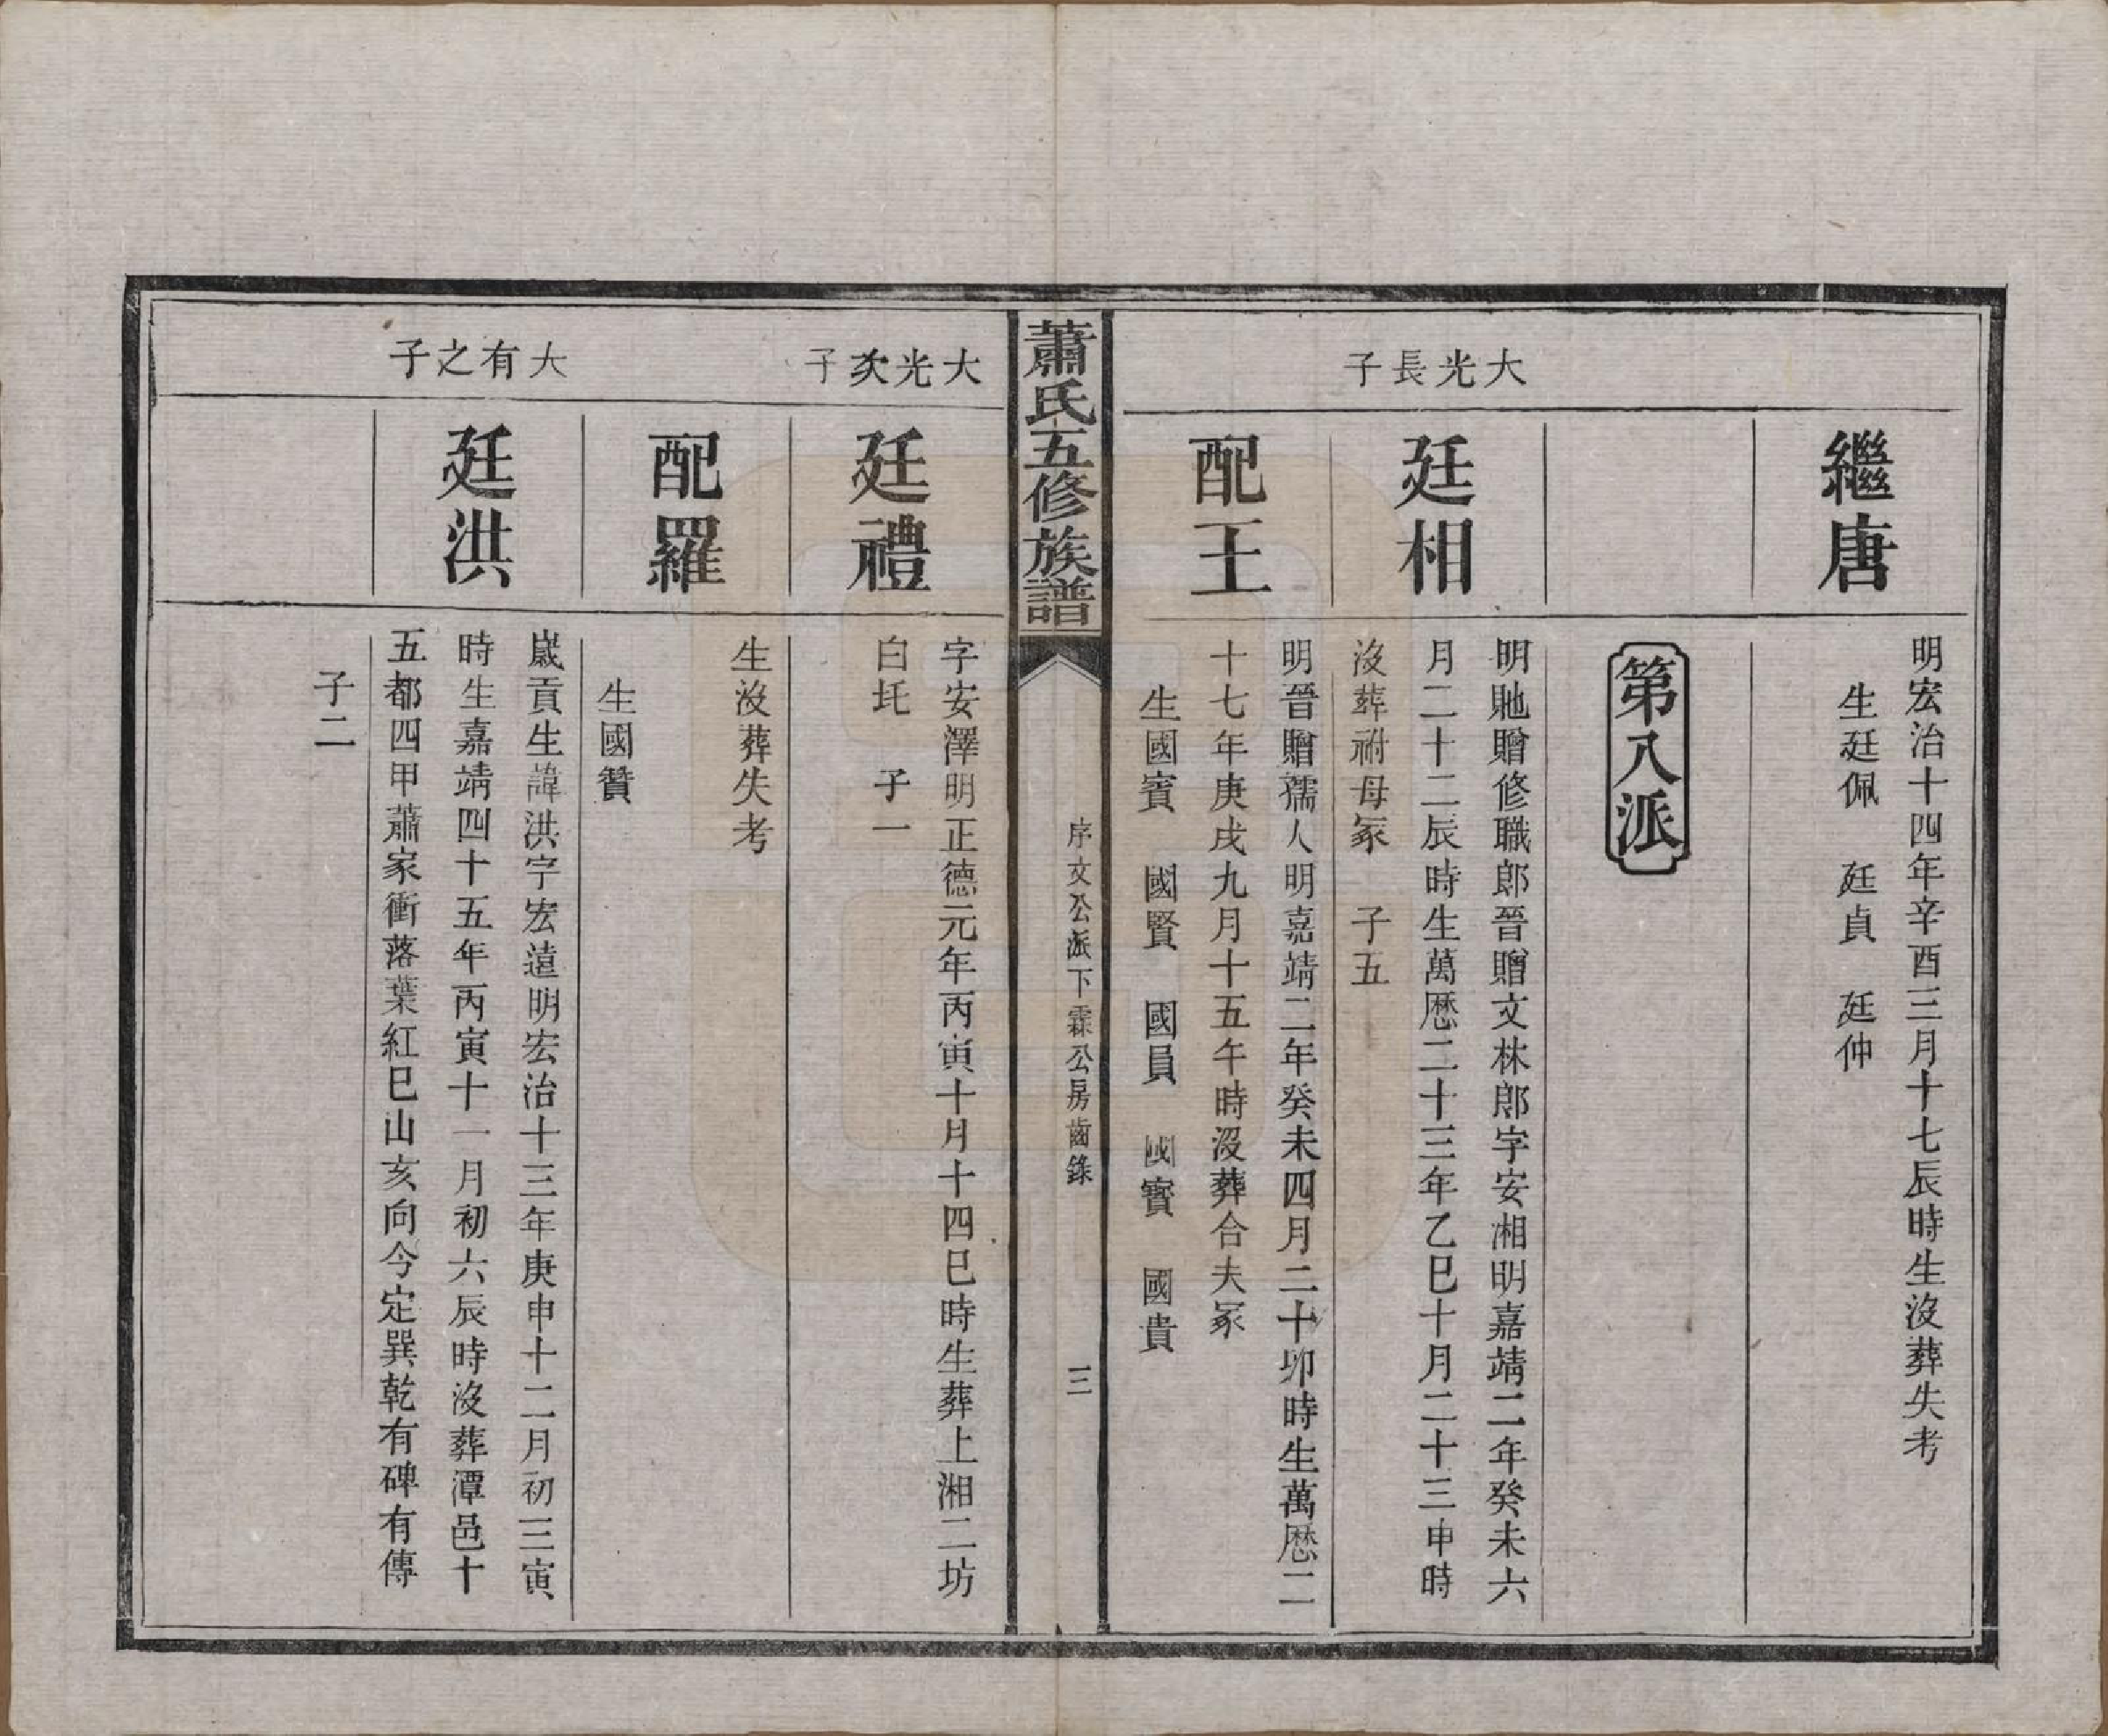 繼唐
明宏治十四年辛酉三月十七辰時生沒葬失考
生廷佩　廷貞　廷仲
第八派
大光長子
廷相
明貤贈修職郎晉贈文林郎字安湘明嘉靖二年癸未六
月二十二辰時生萬歷二十三年乙巳十月二十三申時
沒葬祔母冢　子五
配王
明晉贈孺人明嘉靖二年癸未四月二十卯時生萬歷二
十七年庚戌九月十五午時沒葬合夫冢
生國賓　國賢　國員　國寶　國貴
蕭氏五修族譜
序文公派下霖公房齒錄
三
大光次子
廷禮
字安澤明正德元年丙寅十月十四巳時生葬上湘二坊
白圫　子一
配羅
生沒葬失考
生國贊
大有之子
廷洪
歲貢生諱洪字宏遠明宏治十三年庚申十二月初三寅
時生嘉靖四十五年丙寅十一月初六辰時沒葬潭邑十
五都四甲蕭家衝落葉紅巳山亥向今定巽乾有碑有傳
子二